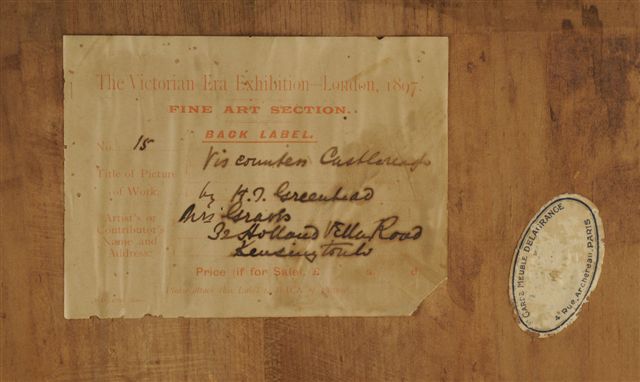 The Victorian Era Exhibition—London, 1897.
FINE ART SECTION.
BACK LABEL.
No. 15
Title of Picture Viscountess Castlereagh
of Work: by H. T. Greenhead
Artist's or Mrs Graves
Contributor's 32 Holland Villa Road
Name and Kensington W
Address:
Price (if for Sale), £ s. d.
GARDE MEUBLE DELAGRANGE
4 Rue Archereau PARIS